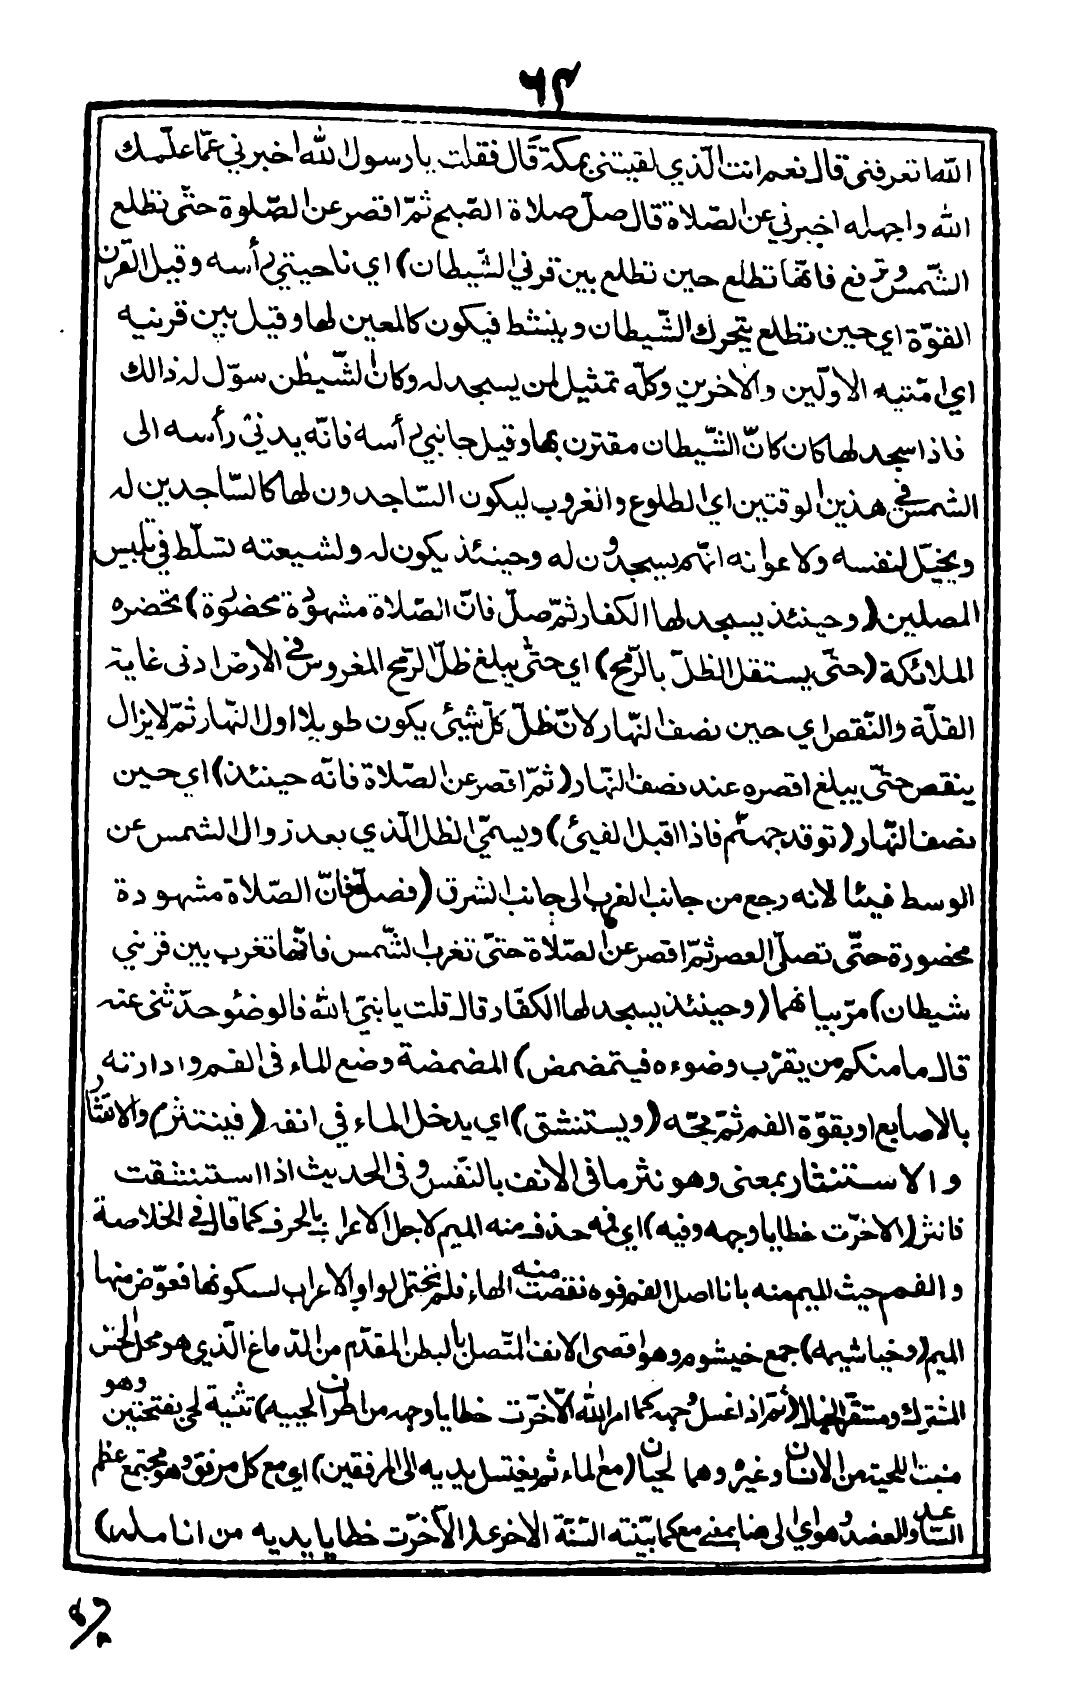 ٦٢
الله اتعرفني قال نعم انت الّذي لقيتني بمكة قال فقلت يا رسول الله اخبرني عمّا علّمك
الله واجهله اخبرني عن الصّلاة قال صلّ صلاة الصّبح ثمّ اقصر عن الصّلوة حتّى تطلع
الشّمس وترفع فانّها تطلع حين تطلع بين قرني الشّيطان) اي ناحيتي رأسه وقيل القرن
القوّة اي حين تطلع يتحرك الشّيطان وينشط فيكون كالمعين لها وقيل بين قرنيه
اي امّتيه الاولّين والأخرين وكلّه تمثيل لمن يسجد له وكانّ الشّيطٰن سوّل له ذالك
فاذا سجد لها كان كانّ الشّيطان مقترن بها وقيل جانبي رأسه فانّه يدني رأسه الى
الشمس في هذين الوقتين اي الطلوع والغروب ليكون السّاجدون لها كالسّاجدين له
ويخيّل لنفسه ولاعوانه انّهم يسجدون له وحينئذ يكون له ولشيعته تسلّط في تلبيس
المصلين (وحينئذ يسجد لها الكفار ثمّ صلّ فانّ الصّلاة مشهودة محضورة) تحضره
الملائكة (حتّى يستقل الظلّ بالرّمح) اي حتّى يبلغ ظلّ الرّمح المغروس في الأرض ادنى غاية
القلّة والنّقص اي حين نصف النّهار لانّ ظلّ كلّ شيئ يكون طويلا اول النّهار ثمّ لا يزال
ينقص حتّى يبلغ اقصره عند نصف النّهار (ثمّ اقصر عن الصّلاة فانّه حينئذ) اي حين
نصف النّهار (توقد جهنّم فاذا اقبل الفيئ) ويسمّى الظل الّذي بعد زوال الشمس عن
الوسط فيئا لانه رجع من جانب الغرب الى جانب الشرق (فصلّ فانّ الصّلاة مشهودة
محضورة حتّى تصلّي العصر ثمّ اقصر عن الصّلاة حتّى تغرب الشّمس فانّها تغرب بين قرني
شيطان) مرّ بيانهما (وحينئذ يسجد لها الكفّار قال قلت يا نبيّ الله فالوضوء حدّثني عنه
قال ما منكم من يقرّب وضوءه فيتمضمض) المضمضة وضع الماء في الفم وادارته
بالاصابع او بقوّة الفم ثمّ مجّه (ويستنشق) اي يدخل الماء في انفه (فينتثر) والانتثار
والاستنثار بمعنى وهو نثر ما في الأنف بالنّفس وفي الحديث اذا استنشقت
فانثر (الا خرّت خطايا وجهه وفيه) اي فمه حذف منه الميم لاجل الاعراب بالحرف كما قال في الخلاصة
والفم حيث الميم منه بانا اصل الفم فوه نقصت منه الهاء فلم تحتمل الواو الاعراب لسكونها فعوّض منها
الميم (وخياشيمه) جمع خيشوم وهو اقصى الانف المتّصل بالبطن المقدّم من الدّماغ الّذي هو محلّ الحسّ
المشترك ومستقرّ الخيال (ثمّ اذا غسل وجهه كما امر الله الّا خرّت خطايا وجهه من اطراف لحييه) تثنية لحي بفتحتين وهو
منبت اللحية من الانسان وغيره وهما لحيان (مع الماء ثم يغتسل يديه الى المرفقين) اي مع كل مرفق وهو مجتمع عظم
الساعد والعضد وهو اي الى هنا بمعنى مع كما بيّنته السّنّة الاخرى (الّا خرّت خطايا يديه من انامله)